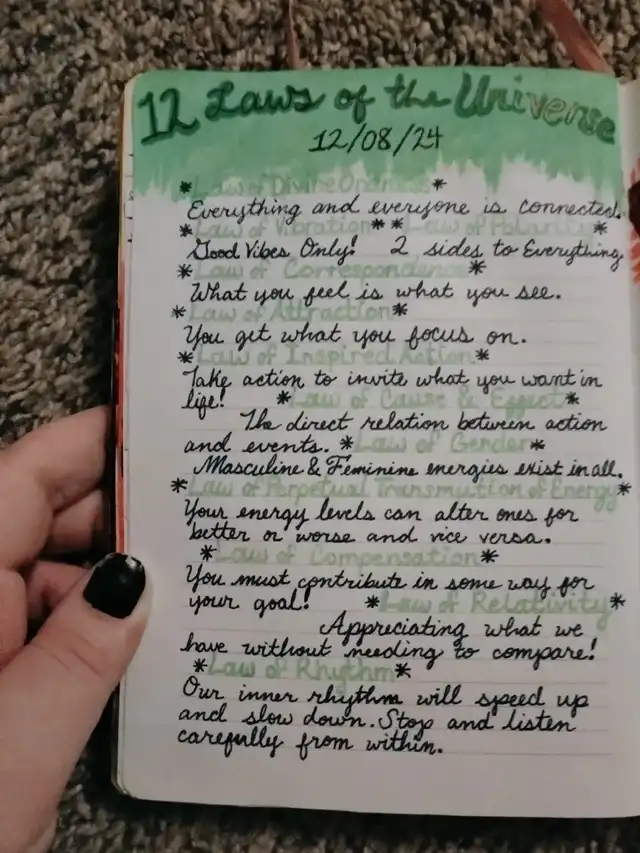 12 Laws of the Universe
12/08/24
*Law of Divine Oneness*
Everything and everyone is connected.
*Law of Vibration* *Law of Polarity*
Good Vibes Only! 2 sides to Everything
*Law of Correspondence*
What you feel is what you see.
*Law of Attraction*
You get what you focus on.
*Law of Inspired Action*
Take action to invite what you want in
life! *Law of Cause & Effect*
The direct relation between action
and events. *Law of Gender*
Masculine & Feminine energies exist in all.
*Law of Perpetual Transmution of Energy*
Your energy levels can alter ones for
better or worse and vice versa.
*Law of Compensation*
You must contribute in some way for
your goal! *Law of Relativity*
Appreciating what we
have without needing to compare!
*Law of Rhythm*
Our inner rhythm will speed up
and slow down. Stop and listen
carefully from within.